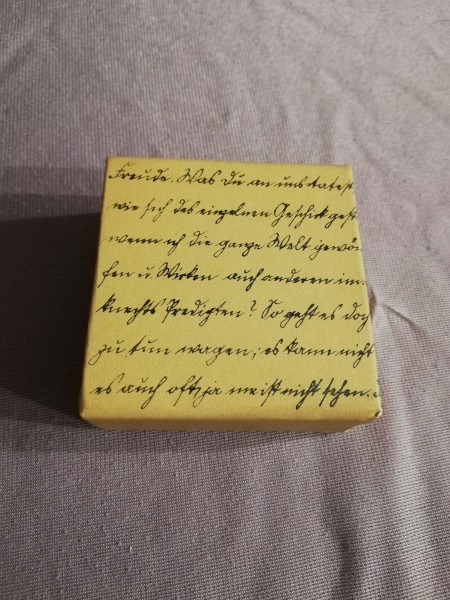 Freude. Was Du an uns tatest
wie sich des einzelnen Geschick gest
wenn ich die ganze Welt gewön
fen u. Wirken auch anderen im
knechts Predigten? So geht es doch
zu tun wagen; es kann nicht
es auch oft, ja meist nicht sehen.